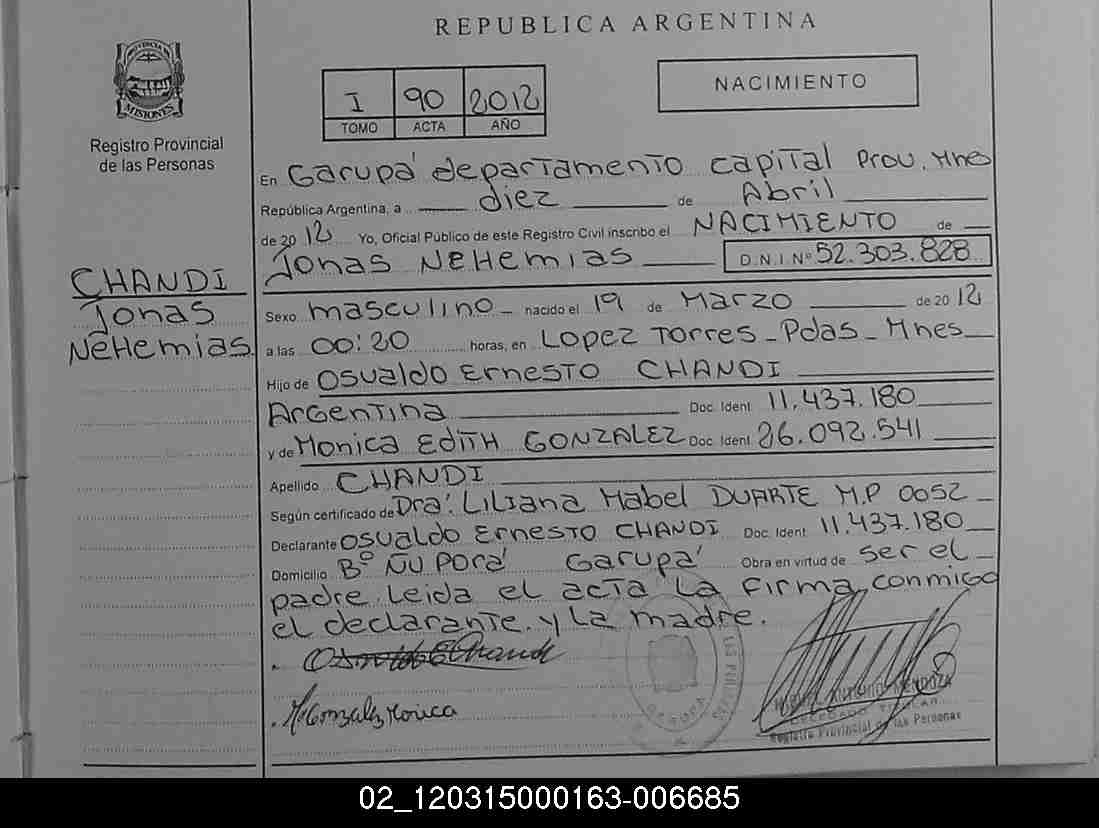 REPUBLICA ARGENTINA
PROVINCIA DE
MISIONES
Registro Provincial
de las Personas
I 90 2012
TOMO ACTA AÑO
NACIMIENTO
En Garupá departamento capital Prov. Mnes
República Argentina, a diez de Abril
de 2012 Yo, Oficial Público de este Registro Civil inscribo el NACIMIENTO de
Jonas NEHemias D.N.I.Nº 52.303.828
CHANDI
Jonas
NeHemias
Sexo masculino nacido el 19 de Marzo de 2012
a las 00:20 horas, en Lopez Torres - Pdas - Mnes
Hijo de Osvaldo Ernesto CHANDI
Argentina Doc. Ident 11.437.180
y de Monica Edith GONZALEZ Doc. Ident 26.092.541
Apellido CHANDI
Según certificado de Dra. Liliana Mabel DUARTE M.P 0052
Declarante osvaldo Ernesto CHANDI Doc. Ident 11.437.180
Domicilio Bº ÑU PORá Garupá Obra en virtud de ser el
padre leida el acta la firma conmigo
el declarante y la madre.
M. Gonzalez Monica
ANTONIO MENDOZA
DELEGADO TITULAR
Registro Provincial de las Personas
GARUPA
02_120315000163-006685